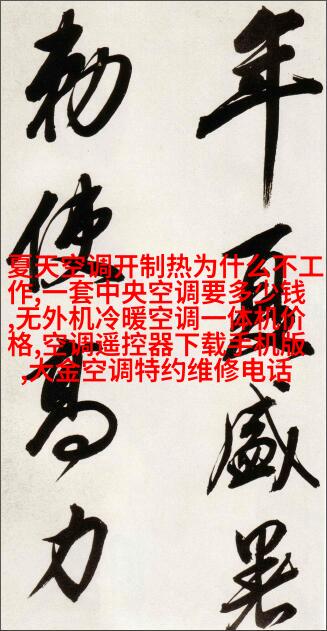 年夏盛暑
勅使高力
夏天空调开制热为什么不工
作,一套中央空调要多少钱
,无外机冷暖空调一体机价
格,空调遥控器下载手机版
,大金空调特约维修电话